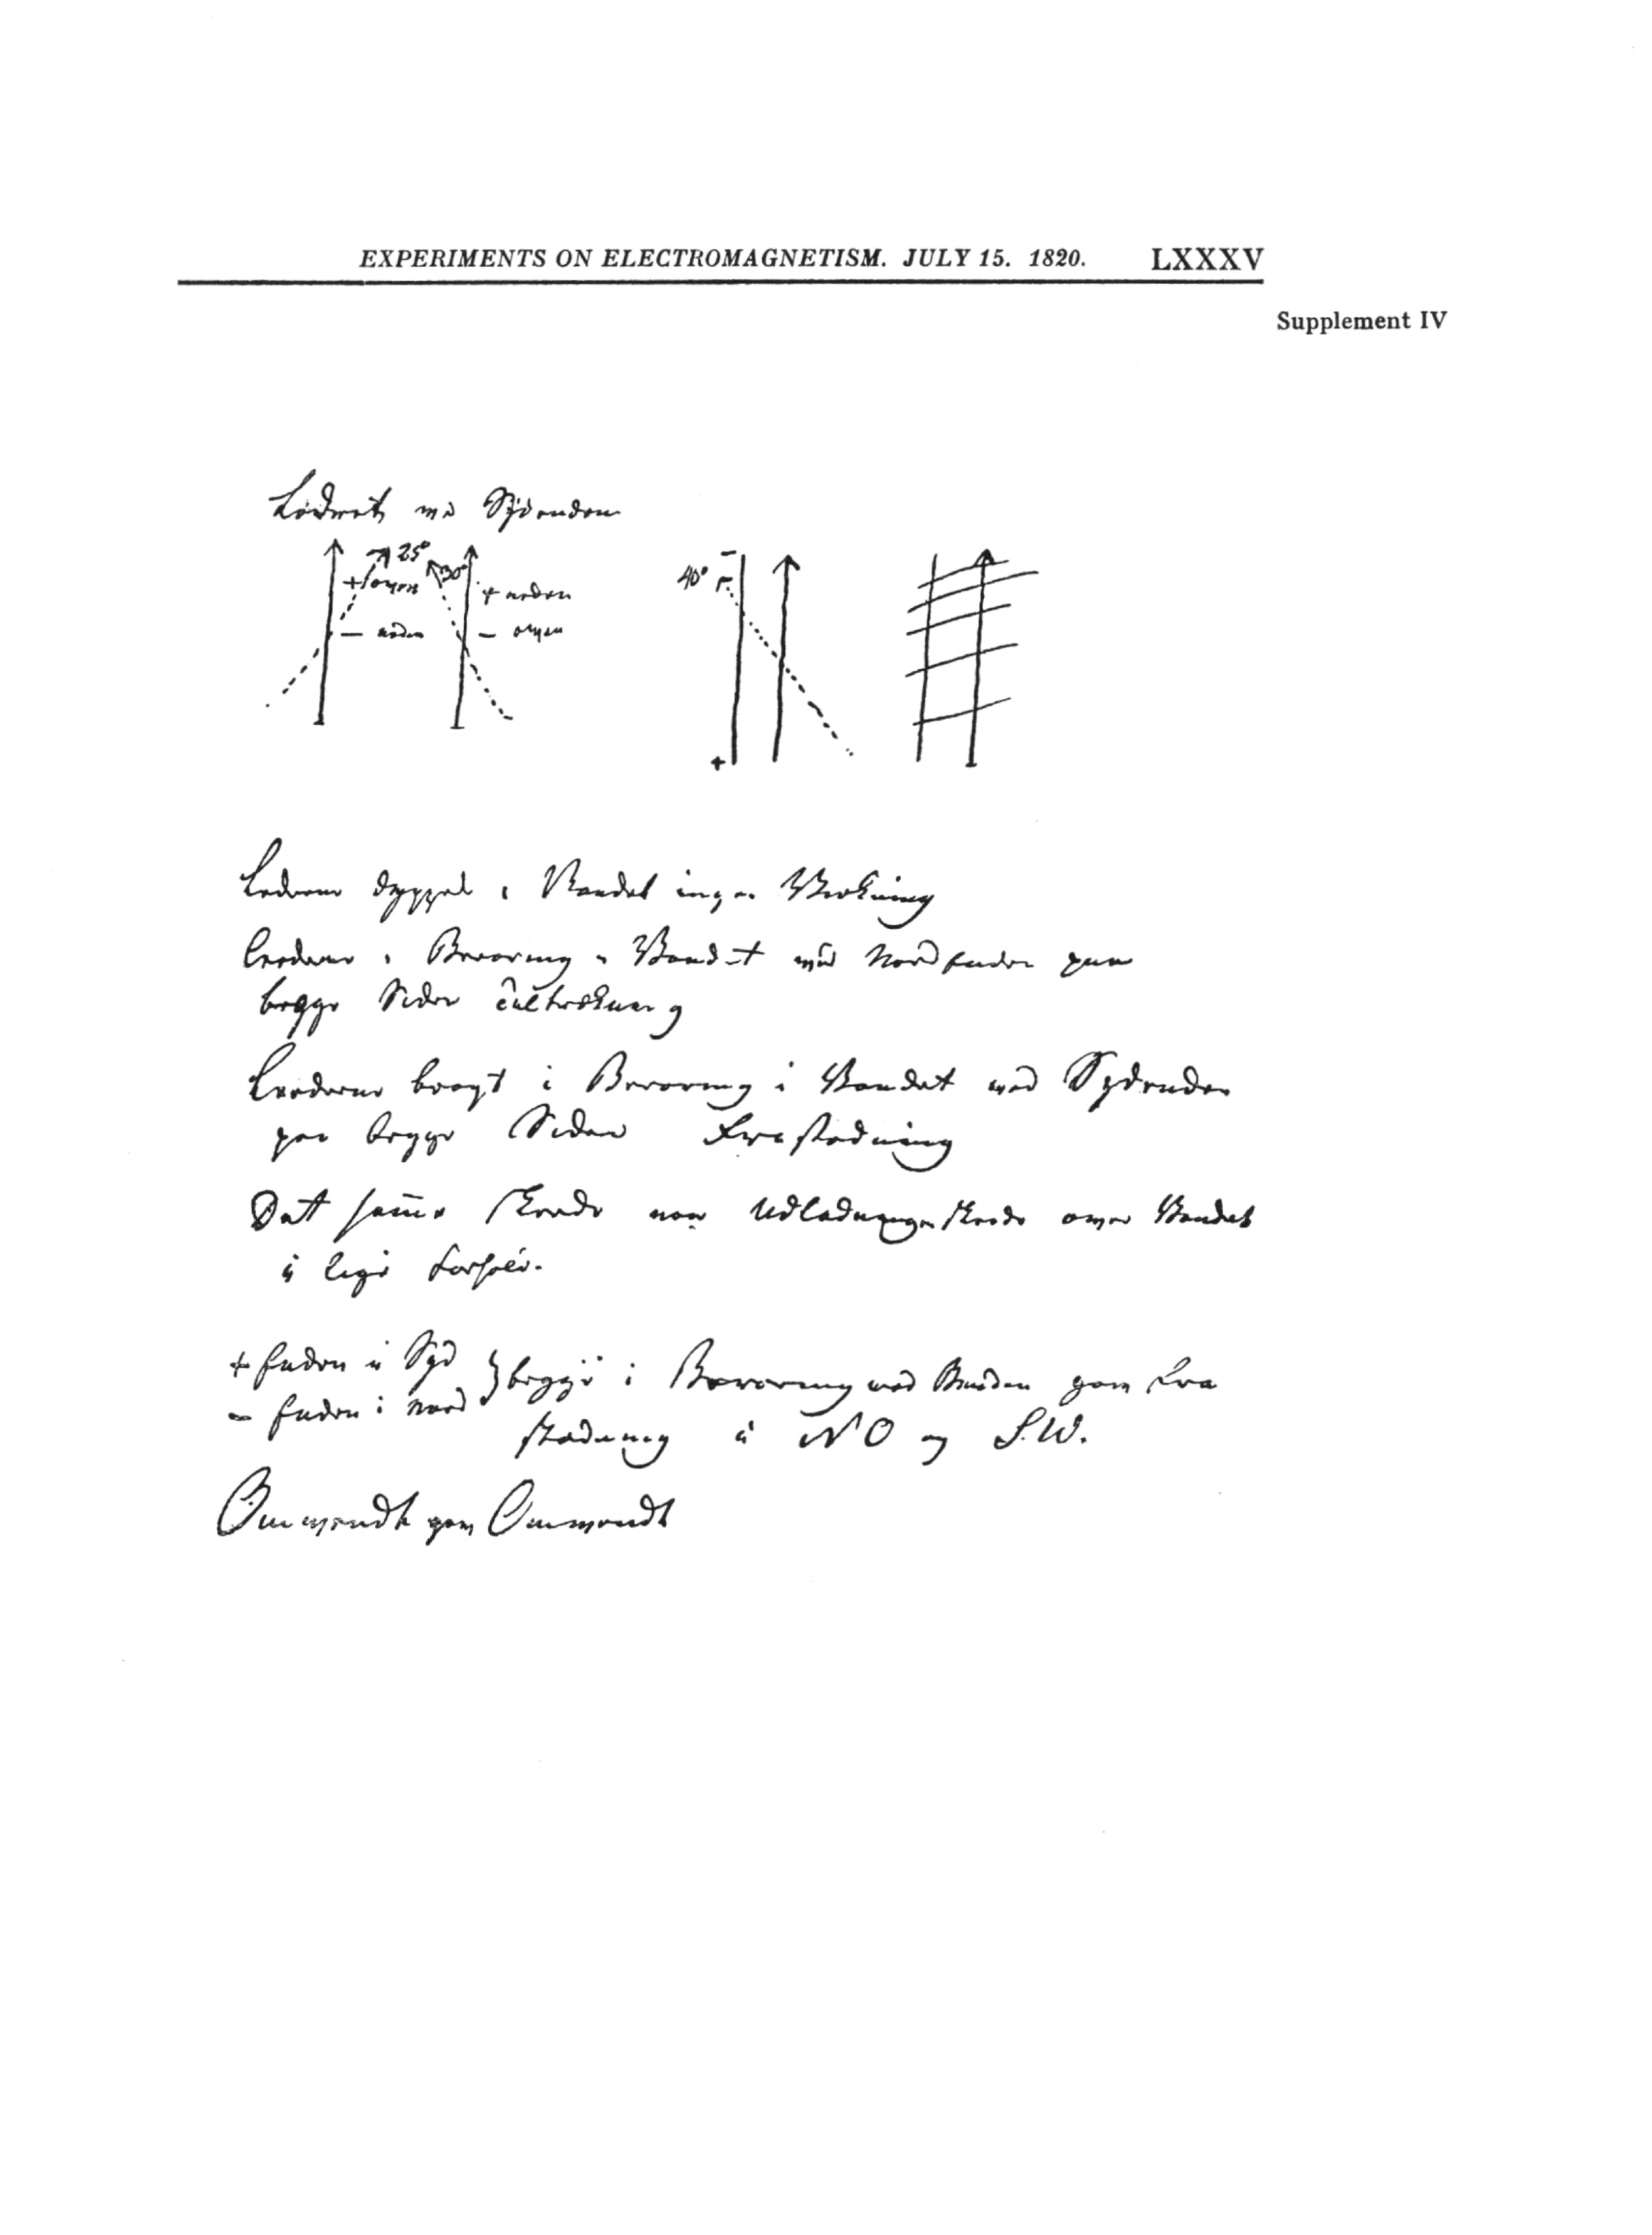 EXPERIMENTS ON ELECTROMAGNETISM. JULY 15. 1820. LXXXV
Supplement IV
Lodret ved Sydenden
25°
30°
+ foroven
+ neden
— neden
— oven
40°
−
+
Lederne dyppet i Vandet ingen Virkning
Lederne i Berøring i Vandet ved Nordenden paa
begge Sider tiltrækning
Lederne bragt i Berøring i Vandet ved Sydenden
paa begge Sider Frastødning
Det samme skeede naar Udladningen skeede over Vandet
i lige
+ Enden i Syd } begge i Berøring ved Enden gav Fra
− Enden i Nord
stødning i NO og S.W.
Omvendt gav Omvendt